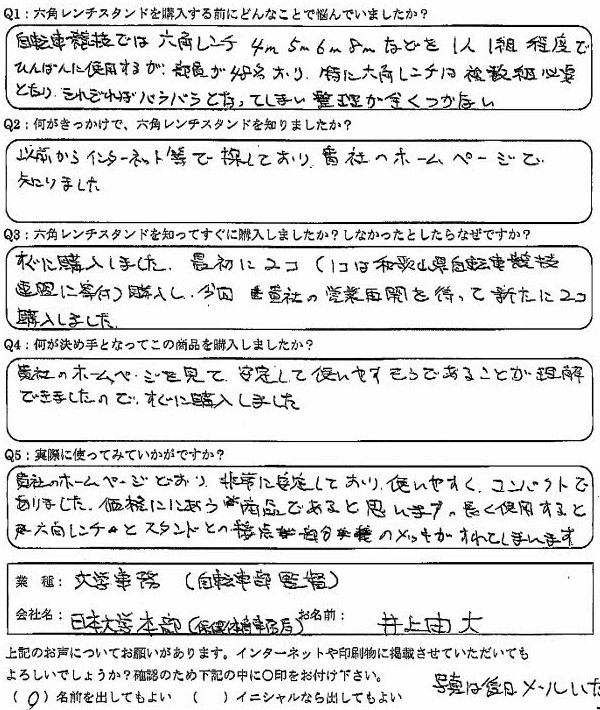 Q1：六角レンチスタンドを購入する前にどんなことで悩んでいましたか？
自転車競技では六角レンチ 4m 5m 6m 8m などを 1人1組程度で
ひんぱんに使用するが、部員が48名おり、特に六角レンチは複数組必要
となり、それぞればバラバラとなってしまい整理が全くつかない
Q2：何がきっかけで、六角レンチスタンドを知りましたか？
以前からインターネット等で探しており、貴社のホームページで
知りました
Q3：六角レンチスタンドを知ってすぐに購入しましたか？しなかったとしたらなぜですか？
すぐに購入しました。最初に2コ（1コは和歌山県自転車競技
連盟に寄付）購入し、今回貴社の営業再開を待って新たに2コ
購入しました。
Q4：何が決め手となってこの商品を購入しましたか？
貴社のホームページを見て、安定して使いやすそうであることが理解
できましたので、すぐに購入しました
Q5：実際に使ってみていかがですか？
貴社のホームページどおり、非常に安定しており、使いやすく、コンパクトで
ありました。価格ににあう商品であると思います。長く使用すると
六角レンチとスタンドとの接点のメッキがすれてしまいます
業 種：文学事務（自転車部監督）
会社名：日本大学本部（保健体育事務局） お名前： 井上由大
上記のお声についてお願いがあります。インターネットや印刷物に掲載させていただいても
よろしいでしょうか？確認のため下記の中に○印をお付け下さい。
（○）名前を出してもよい （ ）イニシャルなら出してもよい 写真は後日メールいた